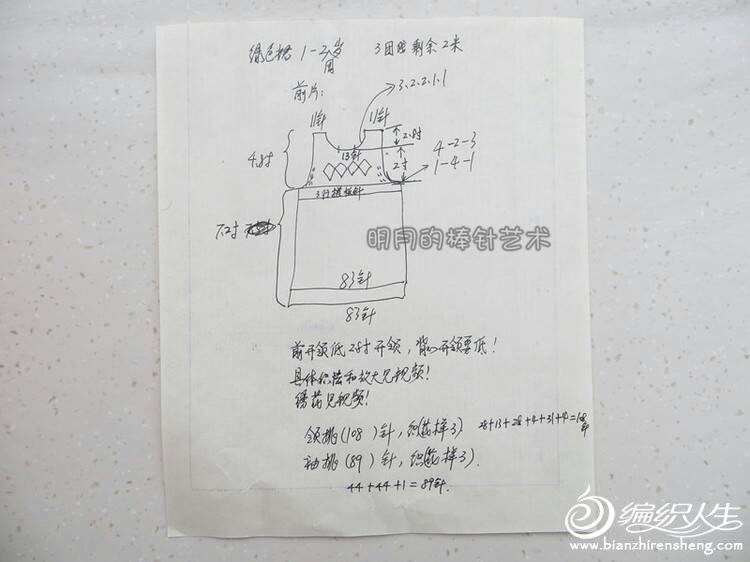 绿色糖 1-2岁用 3团臨剩余2米
前片:
3.2.2.1.1
11针 11针
4.8寸
2.8寸
4-2-3
1-4-1
13针
2寸
3行搓板针
7.2寸
明月的棒针艺术
83针
83针
前开领低2.8寸开领,背心开领要低!
具体织法和放大见视频!
绣花见视频!
领挑(108)针,织(花样3) 28+13+28+4+31+4=108针
袖挑(89)针,织(花样3).
44+44+1=89针.
编织人生
www.bianzhirensheng.com